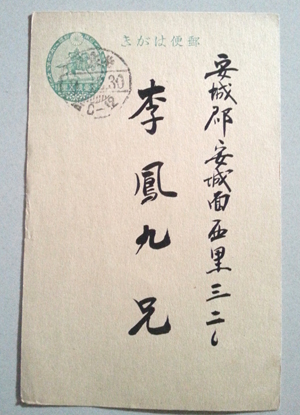 郵便はがき
安城郡安城面西里三二一
李鳳九兄